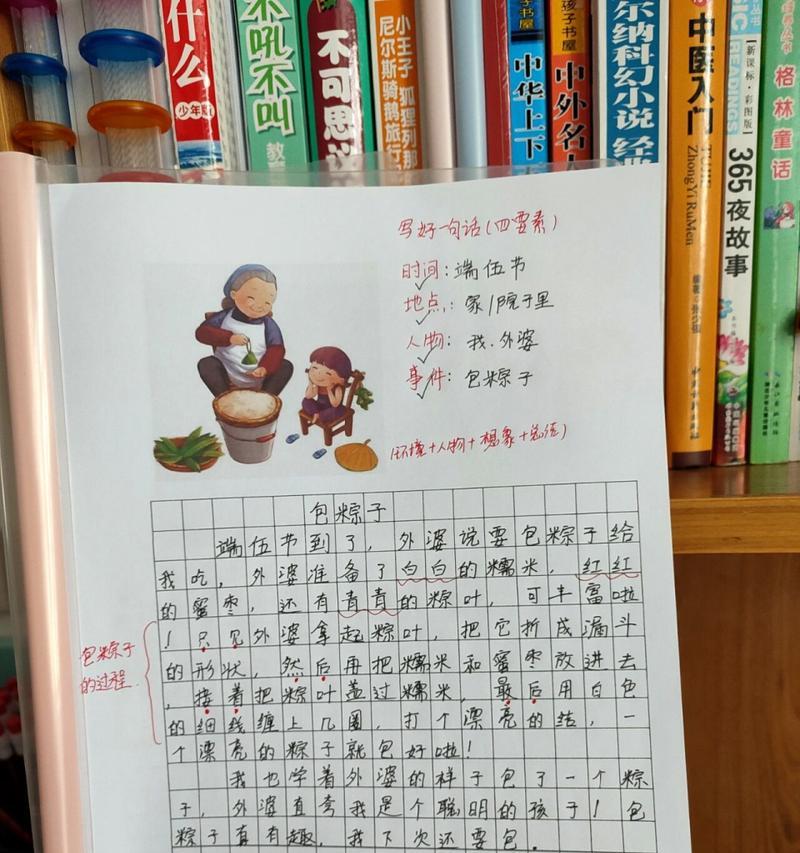 什么
少年版
不吼不叫
不可思议
小王子 狐狸列那
尼尔斯骑鹅旅行
孩子书屋
中华上下
孩子书屋
中外名人
尔纳科幻小说
中医入门
ZhongYi RuMen
READINGS
新课标·彩图版
365夜故事
格林童话
写好一句话(四要素)
时间:端伍节
地点:家/院子里
人物:我.外婆
事件:包粽子
(环境+人物+想象+总结)
包粽子
端伍节到了,外婆说要包粽子给
我吃,外婆准备了白白的糯米,红红
的蜜枣,还有青青的粽叶,可丰富啦
!只见外婆拿起粽叶,把它折成漏斗
的形状,然后再把糯米和蜜枣放进去
,接着把粽叶盖过糯米,最后用白色
的细线缠上几圈,打个漂亮的结,一
个漂亮的粽子就包好啦!
我也学着外婆的样子包了一个粽
子,外婆直夸我是个聪明的孩子!包
粽子真有趣,我下次还要包.
包粽子
的过程